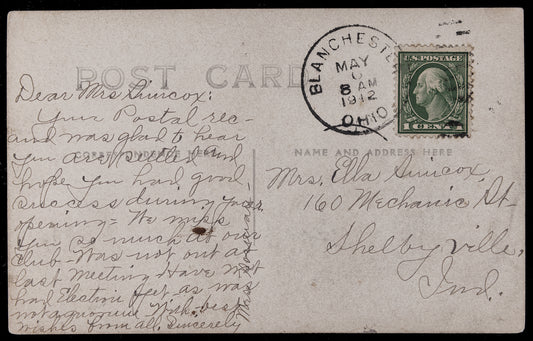 POST CARD
BLANCHESTE
MAY
6
8 AM
1912
OHIO
U.S. POSTAGE
1 CENT 1
CORRESPONDENCE HERE
NAME AND ADDRESS HERE
Dear Mrs Simcox:
Your Postal rec-
and was glad to hear
you are settled and
hope you had good
success during your
opening = We miss
you so much at our
Club - Was not out at
last Meeting Have not
had Election yet as was
not a quorum With best
wishes from all. Sincerely
Mrs
Mrs. Ella Simcox,
160 Mechanic St
Shelbyville,
Ind.